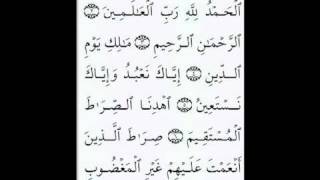 ٱلْحَمْدُ لِلَّهِ رَبِّ ٱلْعَـٰلَمِـينَ ۝
ٱلرَّحْمَـٰنِ ٱلرَّحِيمِ ۝ مَـٰلِكِ يَوْمِ
ٱلـدِّينِ ۝ إِيَّاكَ نَعْبُدُ وَإِيَّاكَ
نَسْتَعِينُ ۝ ٱهْدِنَا ٱلصِّرَٰطَ
ٱلْمُسْتَقِيمَ ۝ صِرَٰطَ ٱلَّذِينَ
أَنْعَمْتَ عَلَيْهِمْ غَيْرِ ٱلْمَغْضُوبِ